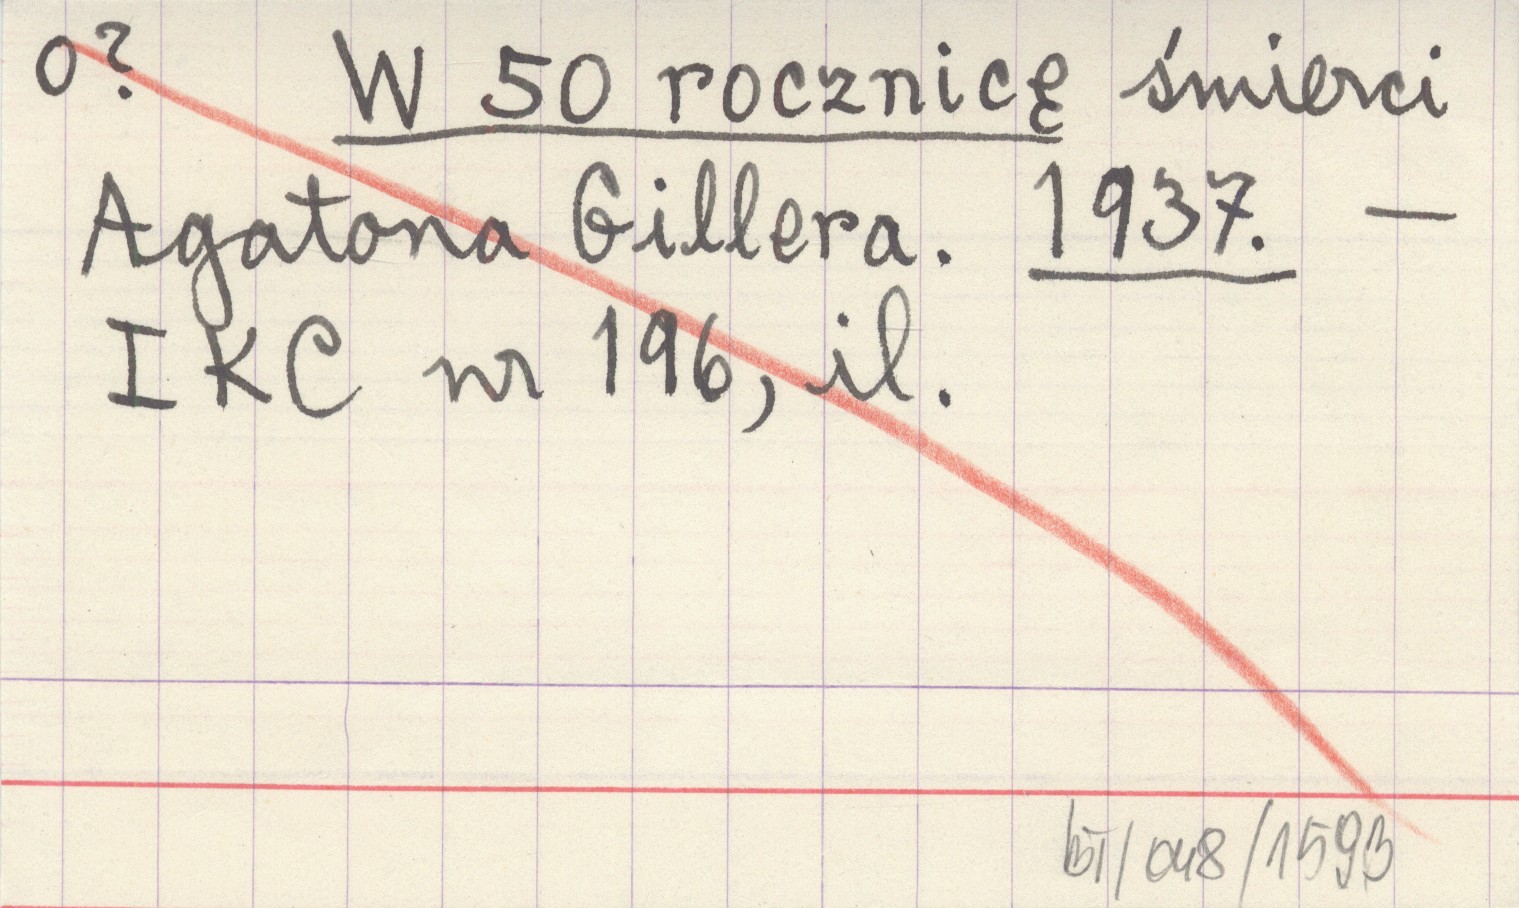 o? W 50 rocznicę śmierci
Agatona Gillera. 1937. —
IKC nr 196, il.
bT/048/1593